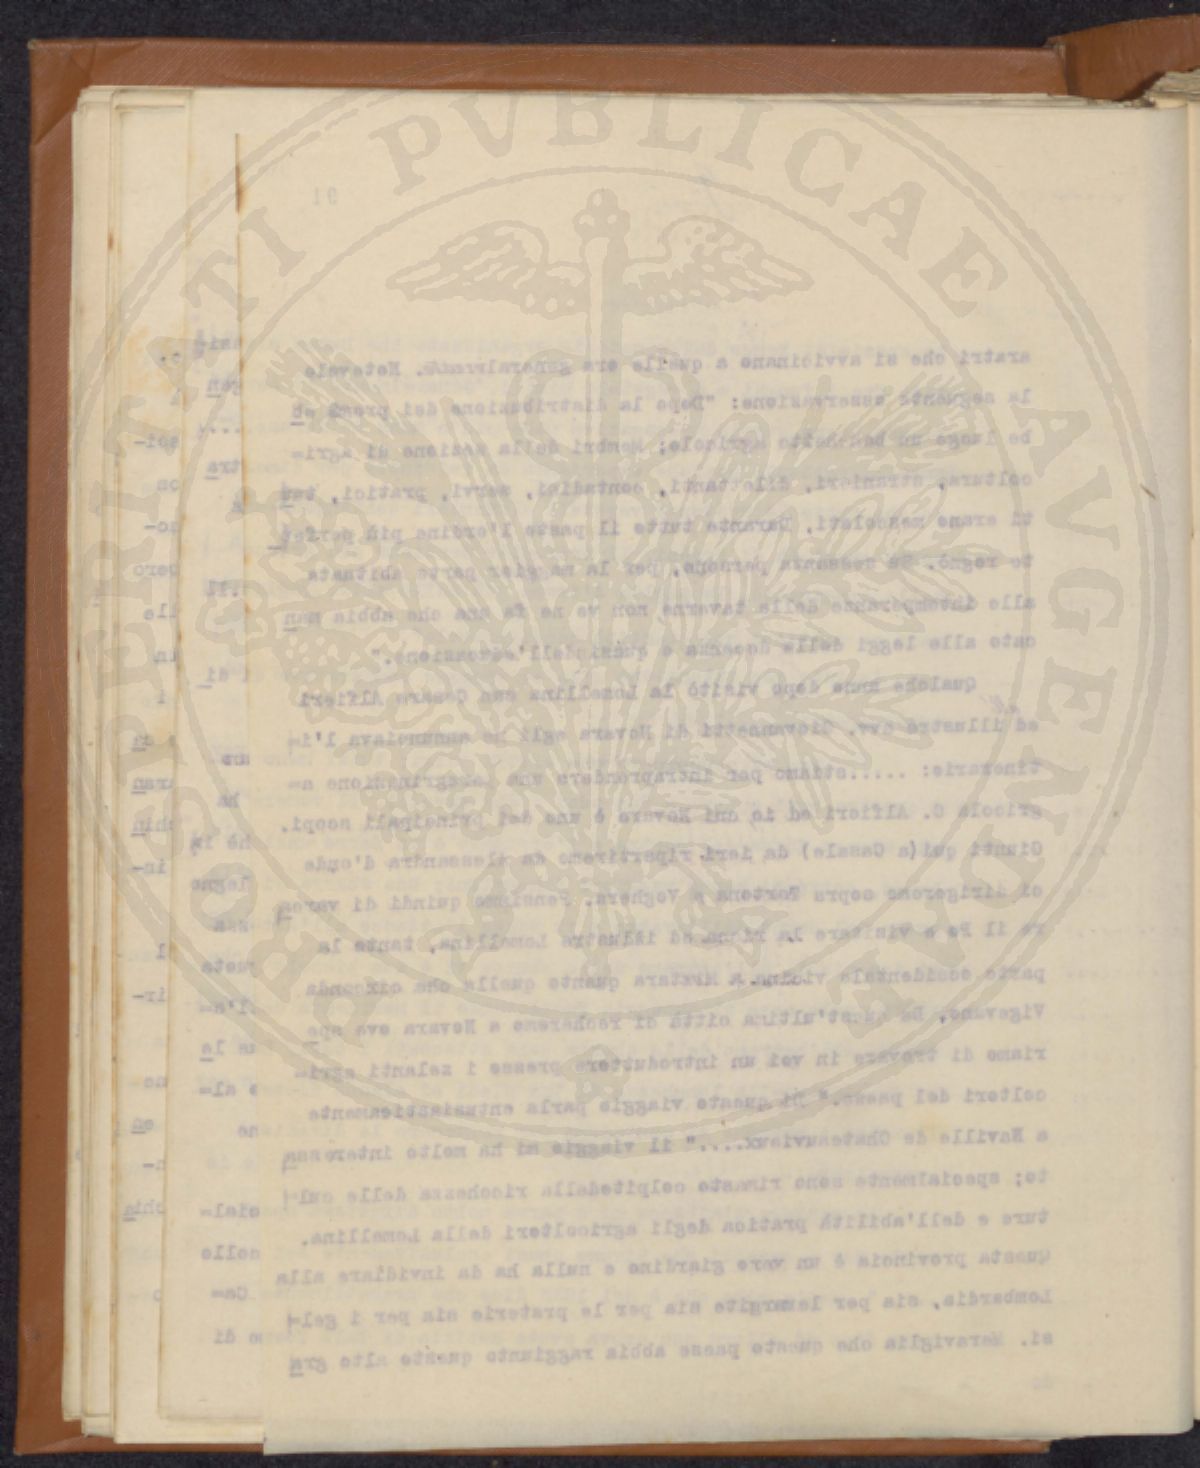 PROSPERITATI PVBLICAE AVGENDAE
91
aratri che si avvicinano a quelle ora generalmente. Notevole
la seguente osservazione: "Dopo la distribuzione dei premi eb
be luogo un banchetto agricolo; Membri della sezione di agri-
coltura, stranieri, dilettanti, contadini, servi, pratici, tut
ti erano mescolati. Durante tutto il pasto l'ordine più perfet
to regnò. Su sessanta persone, per la maggior parte abituate
alle intemperanze della taverna non ve ne fu una che abbia man
cato alle leggi della decenza e quasi dell'educazione."
Qualche mese dopo visitò la Lomellina con Cesare Alfieri
ed illustre avv. Giovannetti di Novara egli ne annunciava l'i-
tinerario: ......stiamo per intraprendere una peregrinazione a-
gricola C. Alfieri ed io cui Novara è uno dei principali scopi.
Giunti qui(a Casale) da ieri ripartiremo da Alessandra d'onde
ci dirigeremo sopra Tortona e Voghera. Pensiamo quindi di varca
re il Po e visitare la ricca ed illustre Lomellina, tanto la
parte occidentale vicina a Mortara quanto quella che circonda
Vigevano. Da quest'ultima città ci recheremo a Novara ove spe
riamo di trovare in voi un introduttore presso i zelanti agri-
coltori del paese." Di questo viaggio parla entusiasticamente
a Naville de Chateauvieux...." il viaggio mi ha molto interessa
to; specialmente sono rimasto colpitodella ricchezza delle cul
ture e dell'abilità pratica degli agricoltori della Lomellina.
Questa provincia è un vero giardino e nulla ha da invidiare alla
Lombardia, sia per lemargite sia per le praterie sia per i gel-
si. Meraviglia che questo paese abbia raggiunto questo alto gra